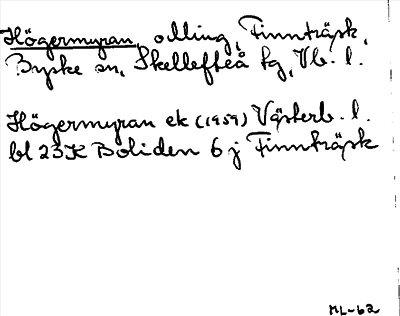 Högermyran, odling, Finnträsk,
Byske sn, Skellefteå tg, Vb. l.
Högermyran ek (1959) Västerb. l.
bl 23K Boliden 6 j Finnträsk
ML-62